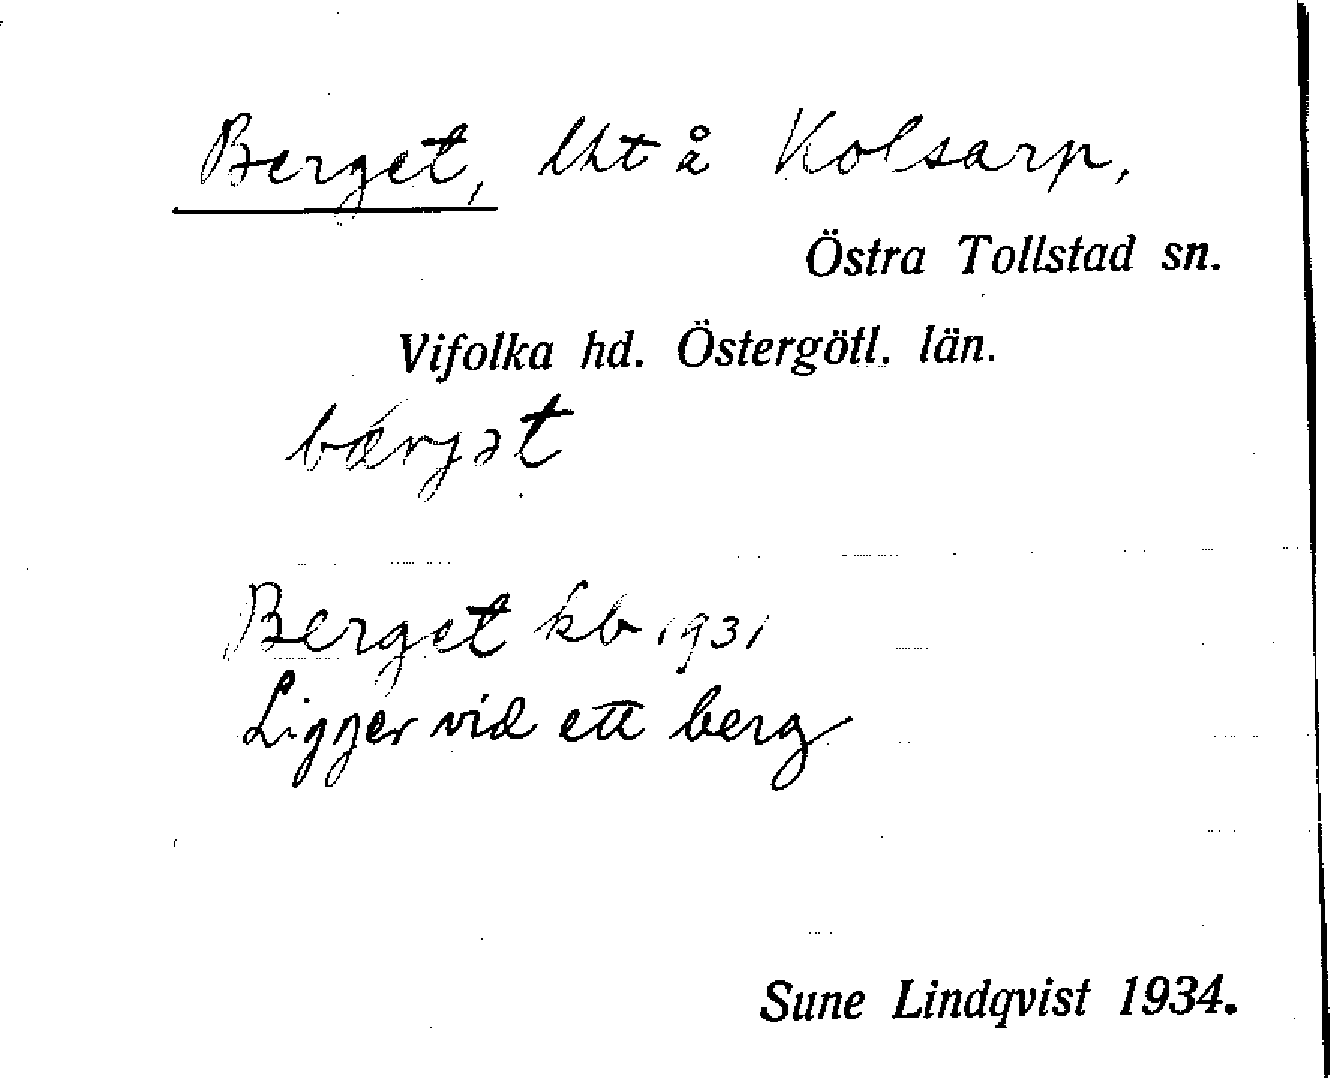 Berget, lht å Kolsarp,
Östra Tollstad sn.
Vifolka hd. Östergötl. län.
bærjət
Berget kb 1931
Ligger vid ett berg
Sune Lindqvist 1934.